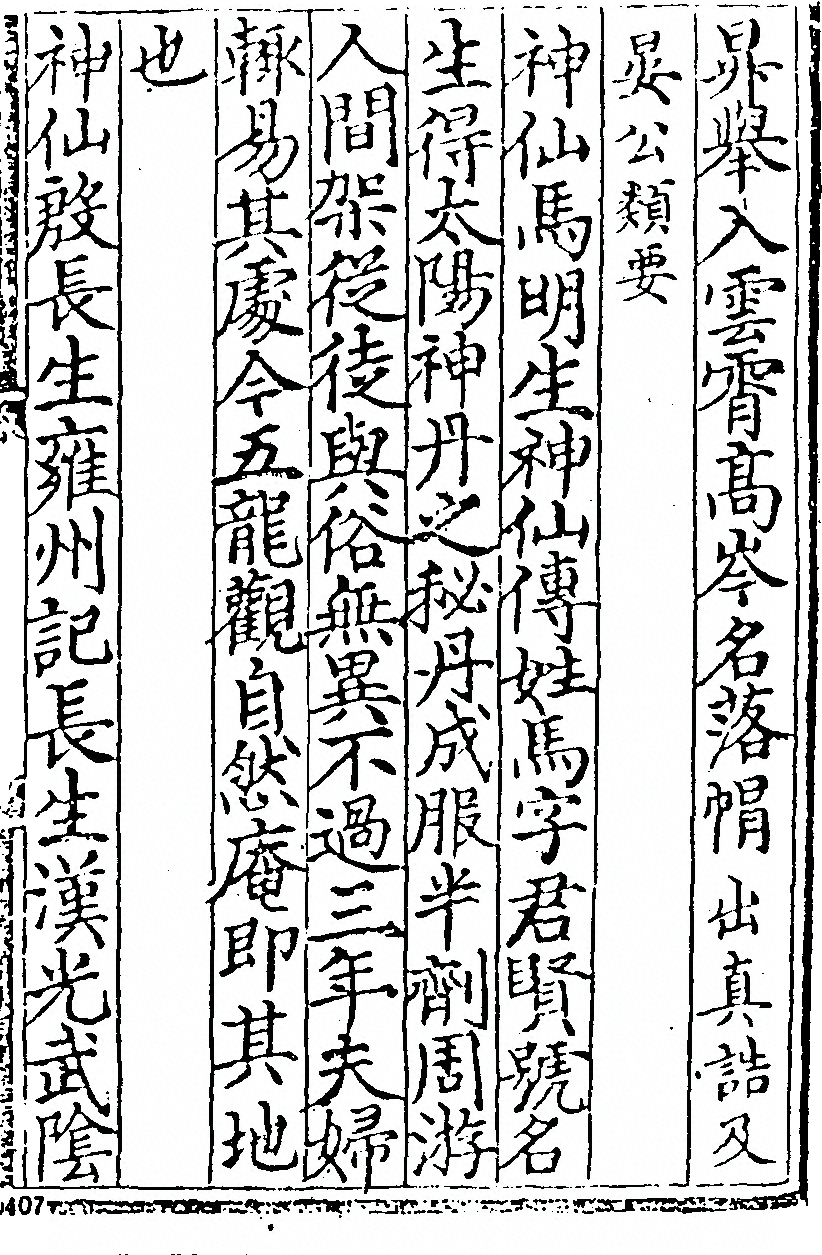 昇舉入雲霄高岑名落帽出真誥及
晏公類要
神仙馬明生神仙傳姓馬字君賢號名
生得太陽神丹之秘丹成服半劑周游
人間架從徒與俗無異不過三年夫婦
輙易其處今五龍觀自然庵即其地
也
神仙殷長生雍州記長生漢光武陰
407